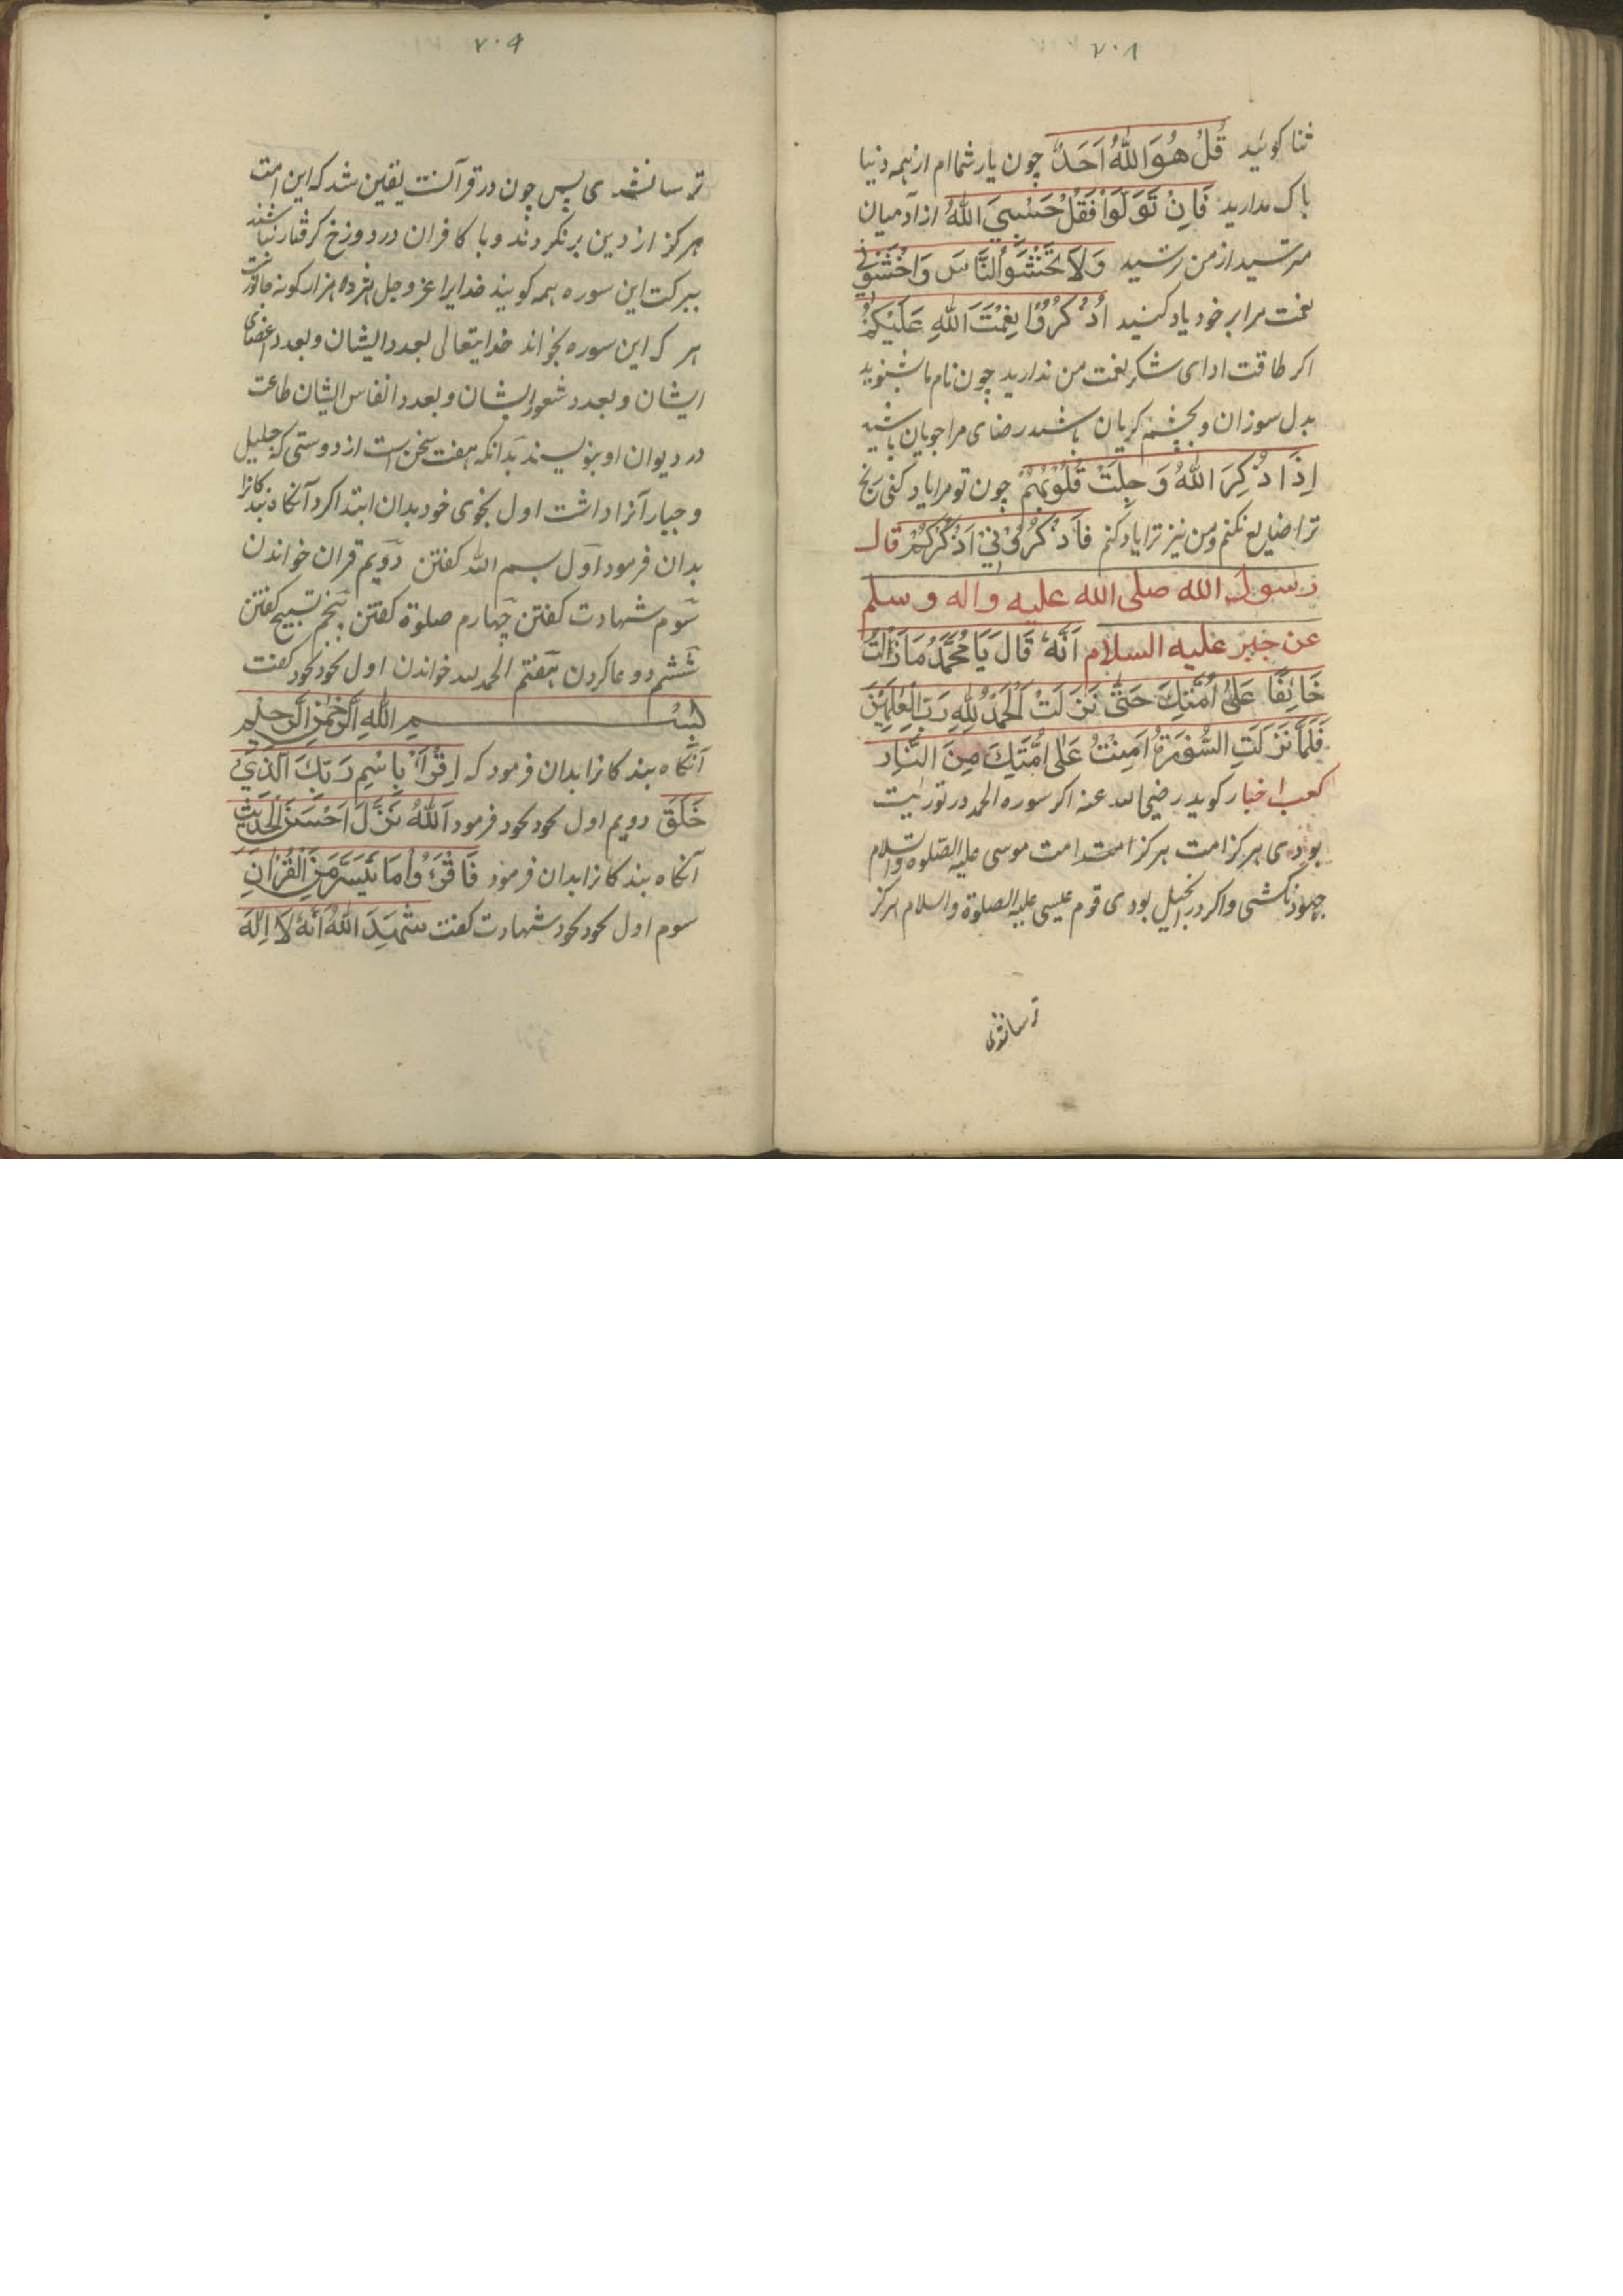 ۷۰۸
ثنا کوئید قُلْ هُوَ اللّٰهُ اَحَدٌ چون یار شماام از همه دنیا
باک مدارید فَاِنْ تَوَلَّوْا فَقُلْ حَسْبِيَ اللّٰهُ از آدمیان
مترسید از من ترسید وَلَا تَخْشَوُا النَّاسَ وَاخْشَوْنِي
نعمت مرا بر خود یاد کنید اُذْكُرُوْا نِعْمَتَ اللّٰهِ عَلَيْكُمْ
اکر طاقت ادای شکر نعمت من ندارید چون نام ما بشنوید
بدل سوزان و بچشم کریان باشید رضای مرا جویان باشید
اِذَا ذُكِرَ اللّٰهُ وَجِلَتْ قُلُوْبُهُمْ چون تو مرا یاد کنی رنج
ترا ضایع نکنم و من نیز ترا یاد کنم فَاذْكُرُوْنِيْ اَذْكُرْكُمْ قال
رسول الله صلی الله علیه واله وسلم
عن جبر علیه السلام اَنَّهُ قَالَ يَا مُحَمَّدُ مَا زَالَتُ
خَائِفًا عَلٰى اُمَّتِكَ حَتّٰى نَزَلَتْ اَلْحَمْدُ لِلّٰهِ رَبِّ الْعٰلَمِيْنَ
فَلَمَّا نَزَلَتِ السُّوْرَةُ اَمِنْتُ عَلٰى اُمَّتِكَ مِنَ النَّارِ
کعب اخبار کوید رضی الله عنه اکر سوره الحمد در توریت
بودی هرکز امت هرکز امت امت موسی علیه الصلوة والسلام
جهود نکشتی واکر در انجیل بودی قوم عیسی علیه الصلوة والسلام هرکز
ترسانشدی
۷۰۹
ترسانشدی پس چون در قرآنست یقین شد که این امت
هرکز از دین برنکردند و با کافران در دوزخ کرفتار نباشند
ببرکت این سوره همه کویند خدایرا عز وجل هژده هزار کونه جانورست
هر که این سوره بخواند خدایتعالی بعدد ایشان و بعدد اعضای
ایشان و بعدد شعور ایشان و بعدد انفاس ایشان طاعت
در دیوان او بنویسند بدانکه هفت سخن است از دوستی که جلیل
و جبار آنرا داشت اول بخوی خود بدان ابتدا کرد آنکاه بندکانرا
بدان فرمود اول بسم الله کفتن دویم قران خواندن
سوم شهادت کفتن چهارم صلوة کفتن پنجم تسبیح کفتن
ششم دوعا کردن هفتم الحمد لله خواندن اول بخود بخود کفت
بسم الله الرحمن الرحیم
آنکاه بندکانرا بدان فرمود که اِقْرَأْ بِاسْمِ رَبِّكَ الَّذِيْ
خَلَقَ دویم اول بخود بخود فرمود اَللّٰهُ نَزَّلَ اَحْسَنَ الْحَدِيْثِ
آنکاه بندکانرا بدان فرمود فَاقْرَءُوْا مَا تَيَسَّرَ مِنَ الْقُرْاٰنِ
سوم اول بخود بخود شهادت کفت شَهِدَ اللّٰهُ اَنَّهُ لَا اِلٰهَ